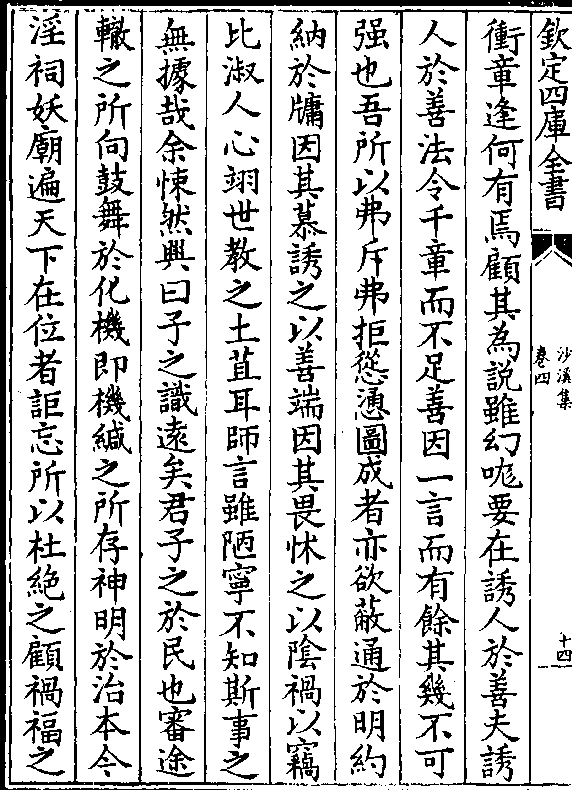 欽定四庫全書
沙溪集
卷四
十四
衝章逢何有焉顧其為說雖幻呃要在誘人於善夫誘
人於善法令千章而不足善因一言而有餘其幾不可
强也吾所以弗斥弗拒慫慂圖成者亦欲蔽通於明約
納於牖因其慕誘之以善端因其畏怵之以隂禍以竊
比淑人心翊世教之土苴耳師言雖陋寧不知斯事之
無據哉余悚然興曰子之識遠矣君子之於民也審途
轍之所向鼓舞於化機即機緘之所存神明於治本今
淫祠妖廟遍天下在位者詎忘所以杜絶之顧禍福之